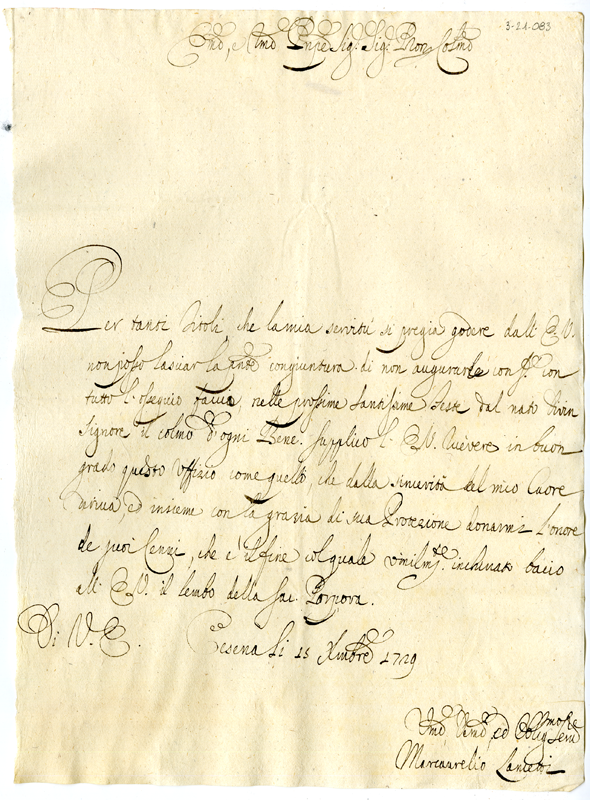 3-21-083
Emo, e Rmo Pnpe Sig.r Sig.r Pron Colmo
Per tanti titoli che la mia servitù si pregia godere dall' E.V.
non posso lasciar la pnte congiuntura di non augurarle con
tutto l'ossequio nelle prossime santissime feste dal nato Divin
Signore il colmo d'ogni Bene. Supplico l' E.V. ricevere in buon
grado questo Uffizio come quello, che dalla sincerità del mio Cuore
deriva, ed insieme con la grazia di sua Protezione donarmi l'onore
de suoi Cenni, che è il fine col quale umilmte. inchinato bacio
all' E.V. il lembo della Sac. Porpora.
Di V. E.
Cesena li 15 Xmbre 1729
Umo Devmo, ed Obligmo Serve
Marcaurelio